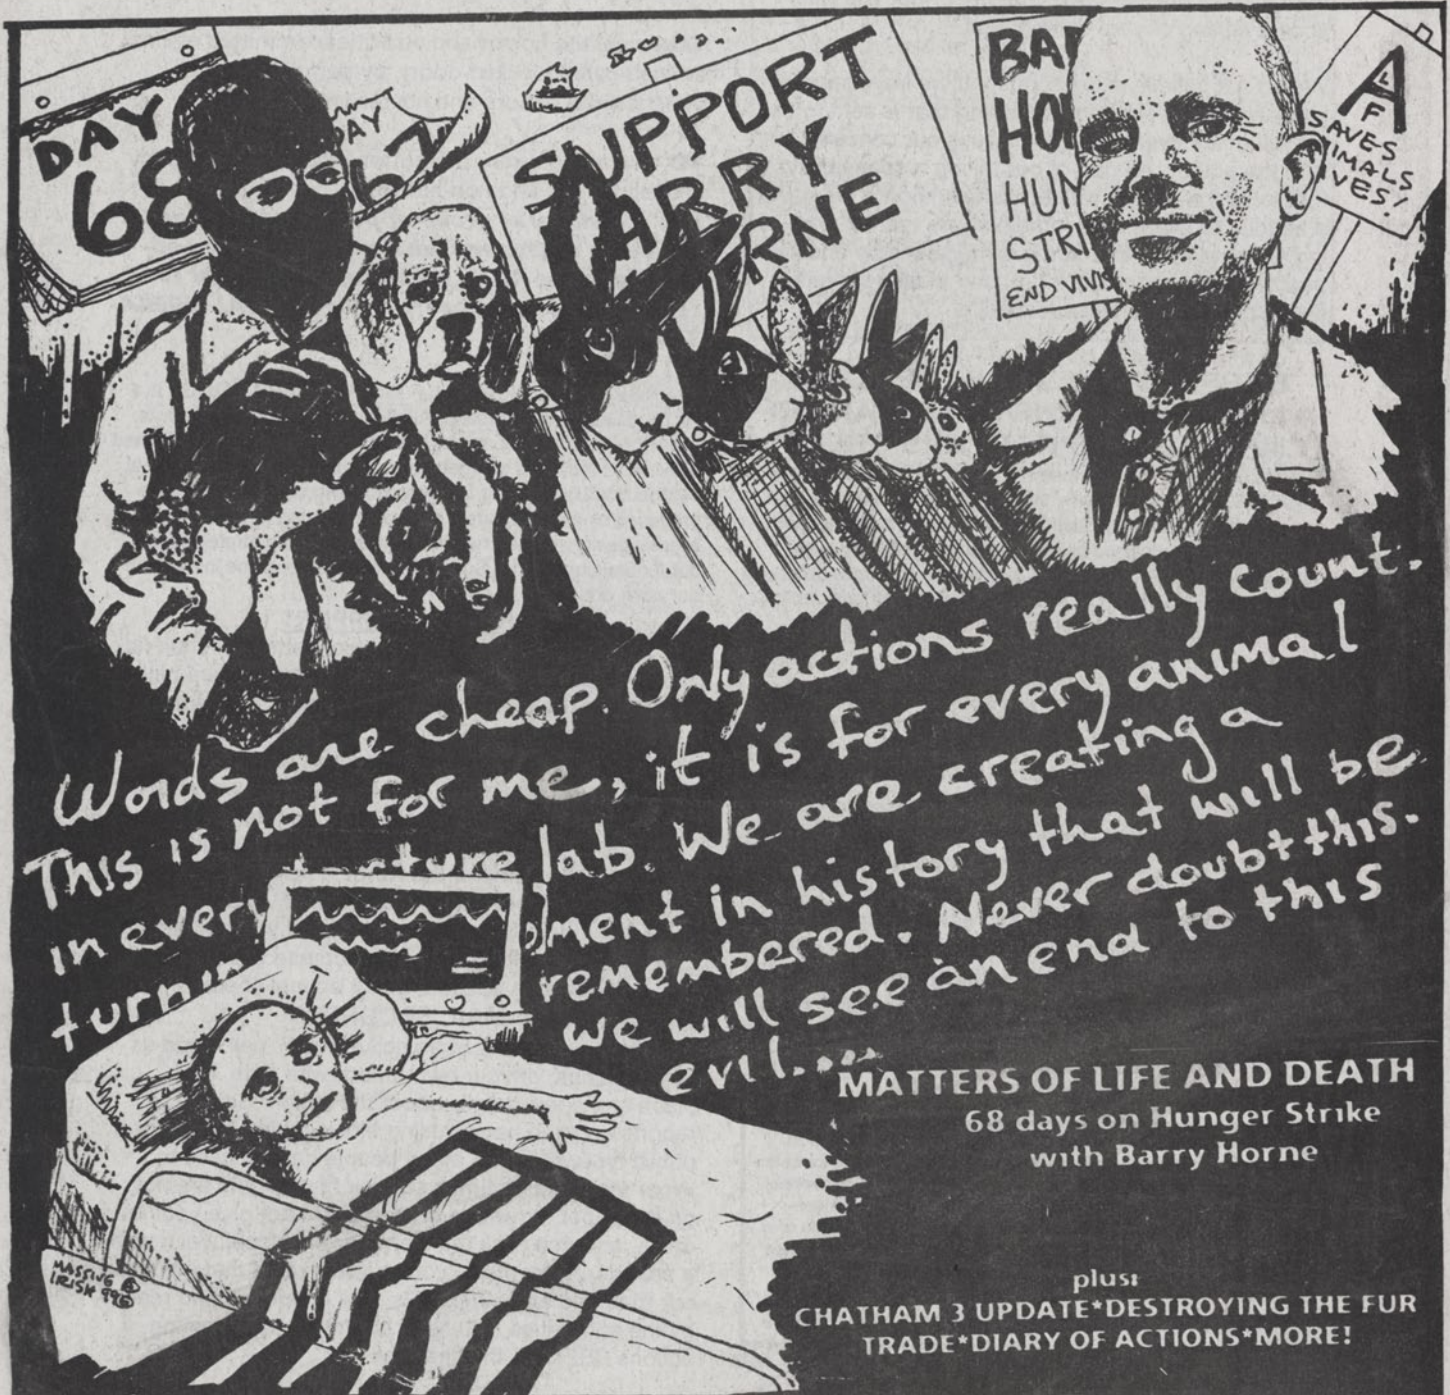 DAY
68
DAY
67
SUPPORT
ARRY
RNE
BA
HO
HUN
STRI
END VIVIS
A
L
F
SAVES
NIMALS
IVES!
Words are cheap. Only actions really count.
This is not for me, it is for every animal
in every torture lab. We are creating a
turnin ment in history that will be
remembered. Never doubt this.
we will see an end to this
evil....
MATTERS OF LIFE AND DEATH
68 days on Hunger Strike
with Barry Horne
plus:
CHATHAM 3 UPDATE*DESTROYING THE FUR
TRADE*DIARY OF ACTIONS*MORE!
MASSIVE
IRISH 99